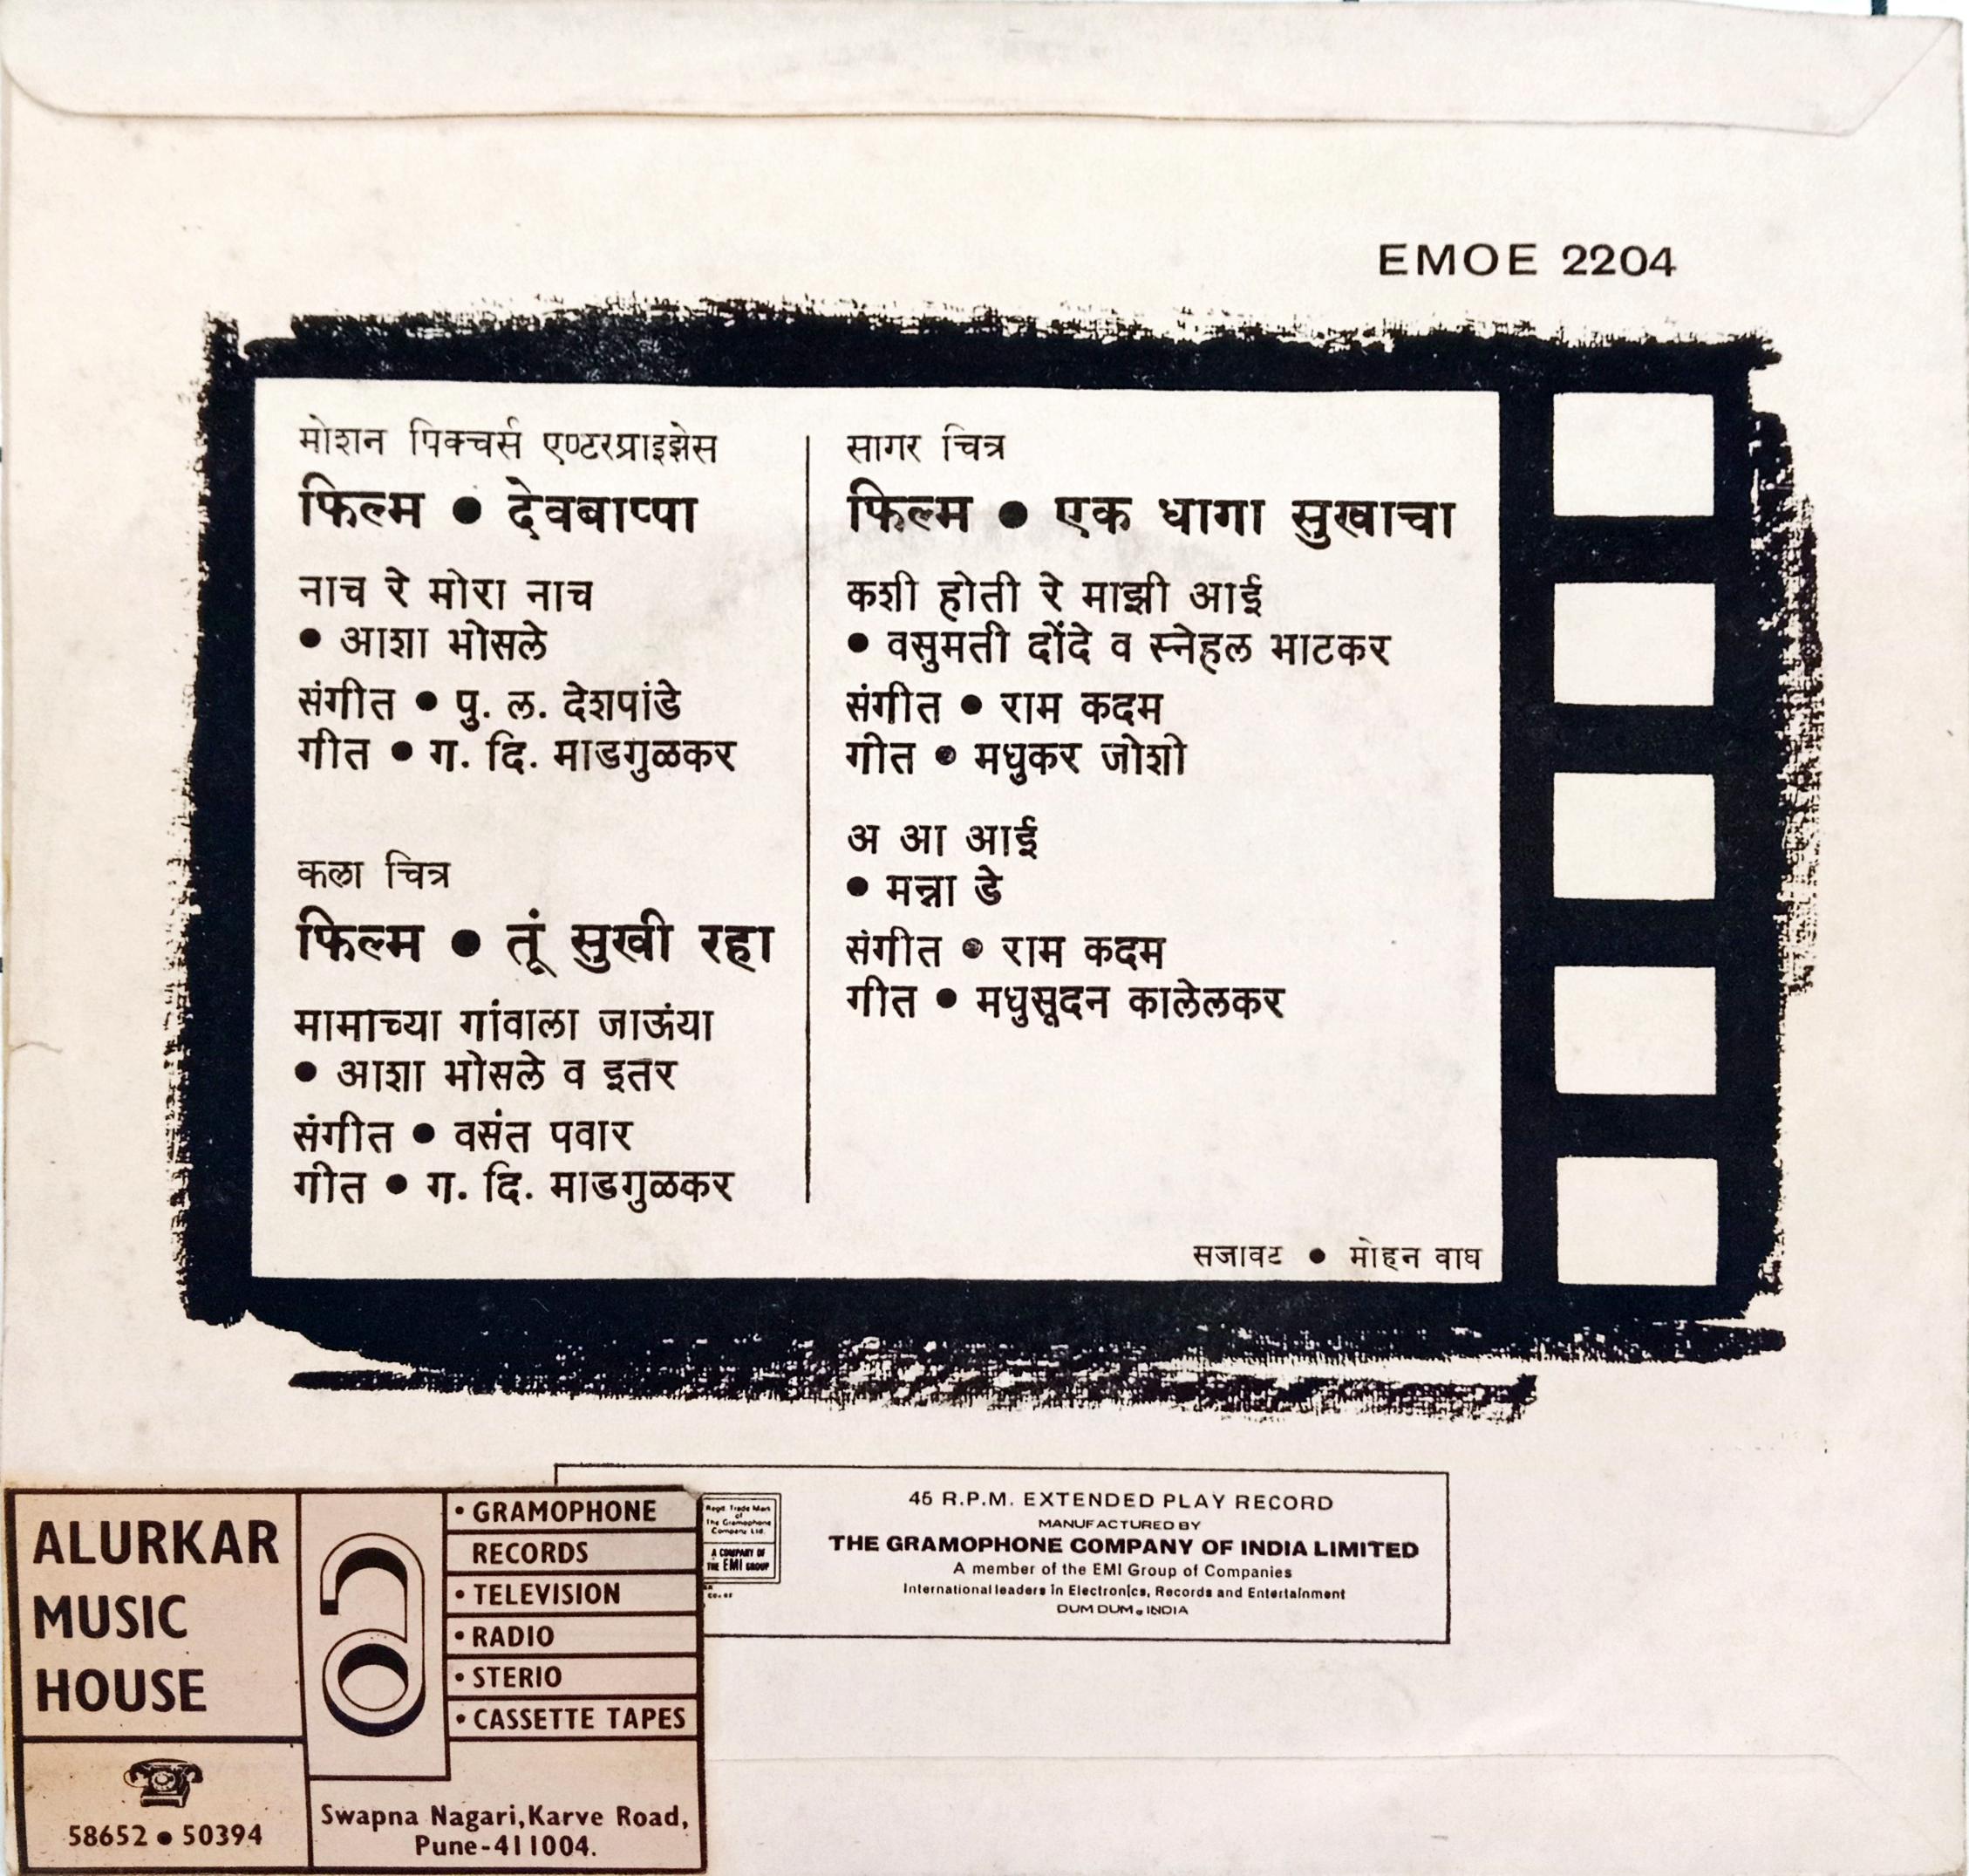 EMOE 2204
मोशन पिक्चर्स एण्टरप्राइझेस
फिल्म ● देवबाप्पा
नाच रे मोरा नाच
● आशा भोसले
संगीत ● पु. ल. देशपांडे
गीत ● ग. दि. माडगुळकर
कला चित्र
फिल्म ● तूं सुखी रहा
मामाच्या गांवाला जाऊंया
● आशा भोसले व इतर
संगीत ● वसंत पवार
गीत ● ग. दि. माडगुळकर
सागर चित्र
फिल्म ● एक धागा सुखाचा
कशी होती रे माझी आई
● वसुमती दोंदे व स्नेहल भाटकर
संगीत ● राम कदम
गीत ● मधुकर जोशी
अ आ आई
● मन्ना डे
संगीत ● राम कदम
गीत ● मधुसूदन कालेलकर
सजावट ● मोहन वाघ
Regd. Trade Mark
of
The Gramophone
Company Ltd.
A COMPANY OF
THE EMI GROUP
45 R.P.M. EXTENDED PLAY RECORD
MANUFACTURED BY
THE GRAMOPHONE COMPANY OF INDIA LIMITED
A member of the EMI Group of Companies
International leaders in Electronics, Records and Entertainment
DUM DUM, INDIA
ALURKAR
MUSIC
HOUSE
• GRAMOPHONE
RECORDS
• TELEVISION
• RADIO
• STERIO
• CASSETTE TAPES
58652 ● 50394
Swapna Nagari, Karve Road,
Pune-411004.